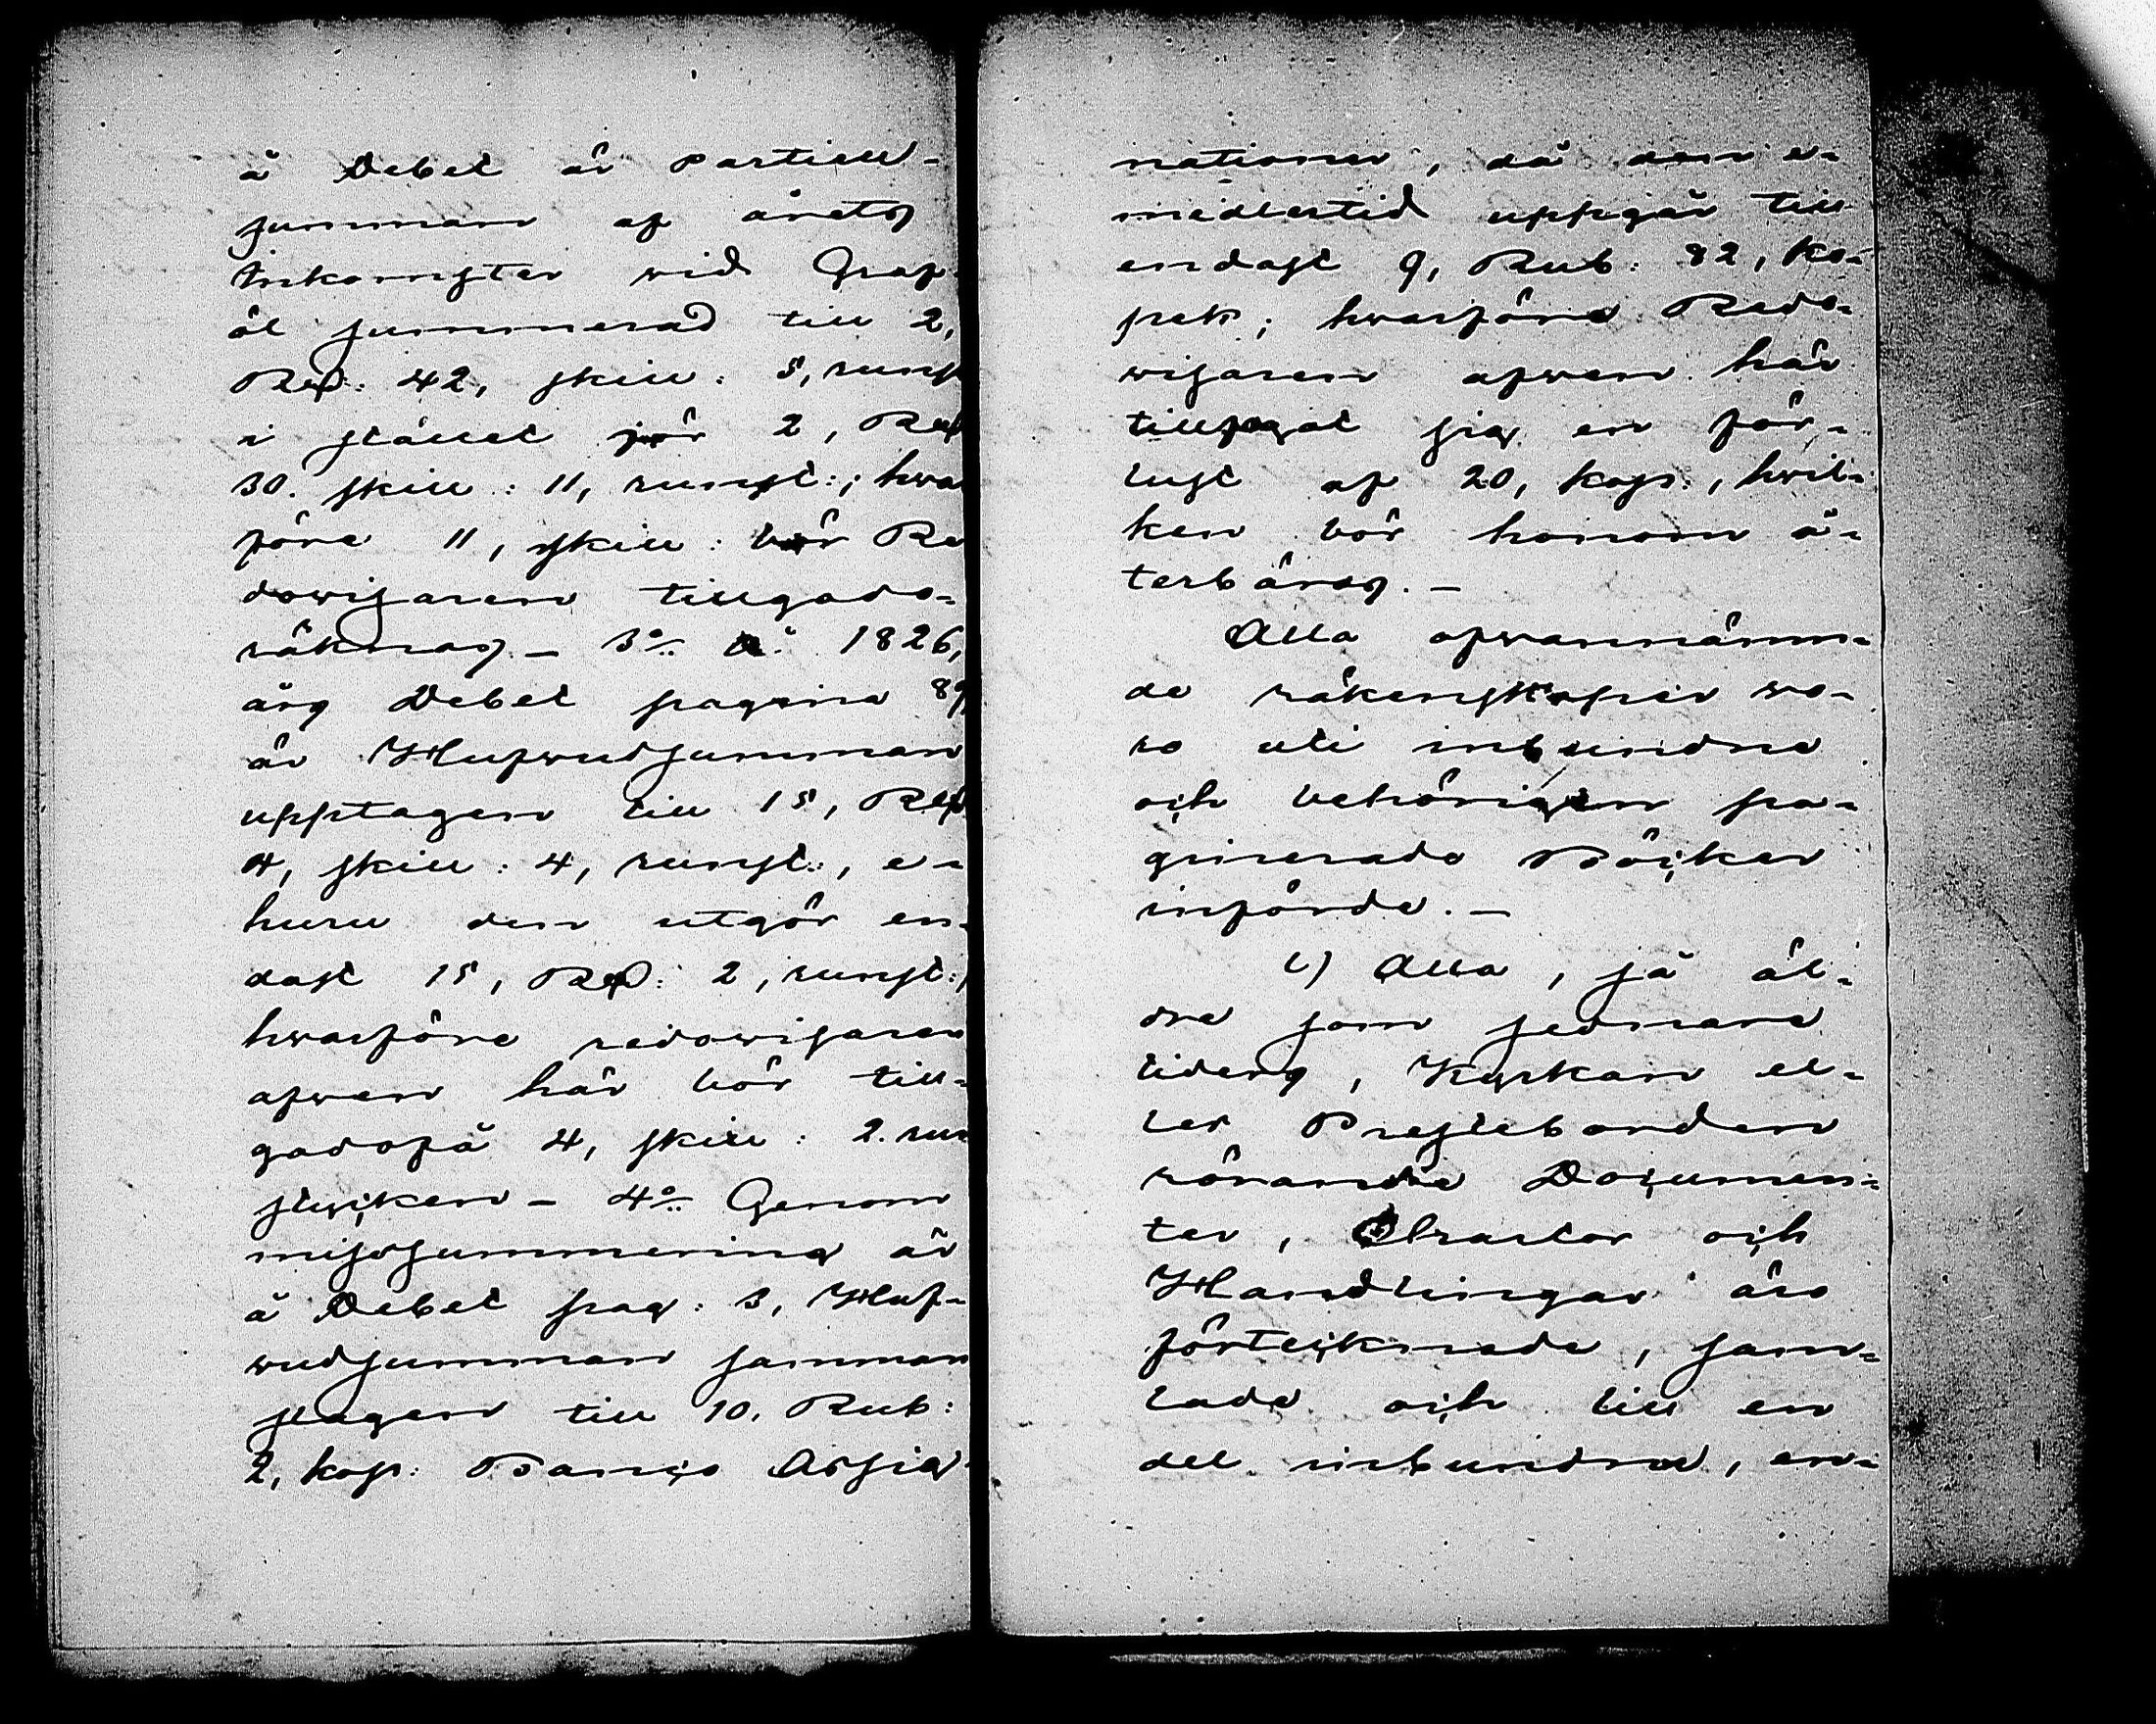 å Debet är Partiell-
summan af årets
Inkomster vid Graf-
öl summerad till 2,
Rd: 42, skill: 5, runst
i stället för 2, Rd
30. skill: 11, runst:; hvar
före 11, skill: bör Re
dovisaren tillgodo-
räknas. – 3:o Å 1826,
års Debet pagina 89
är Hufvudsumman
upptagen till 15, Rd
4, skill: 4, runst:, e-
huru den utgör en-
dast 15, Rd: 2, runst:,
hvarföre redovisaren
afven här bör till-
godofå 4, skill: 2. run
stycken – 4:o Genom
missummering är
å Debet pag: 3, Huf-
vudsumman samman
slagen till 10. Rub:
2, kop: Banco Assig-
nationer, då den e-
medlertid uppgår till
endast 9, Rub: 82, Ko-
pek; hvarföre Redo-
visaren afven här
tillfogat sig en för-
lust af 20, kop:, hvil-
ken bör honom å-
terbäras. –
Alla ofvannämn-
de räkenskaper vo-
ro uti inbundne
och behörigen pa-
ginerade Böcker
införde. –
l) Alla, så äl-
dre som sednare
tiders, Kyrkan el-
ler Prestebordem
rörande Documen-
ter, Chartor och
Handlingar äro
förtecknade, sam-
lade och till en
del inbundne, en-